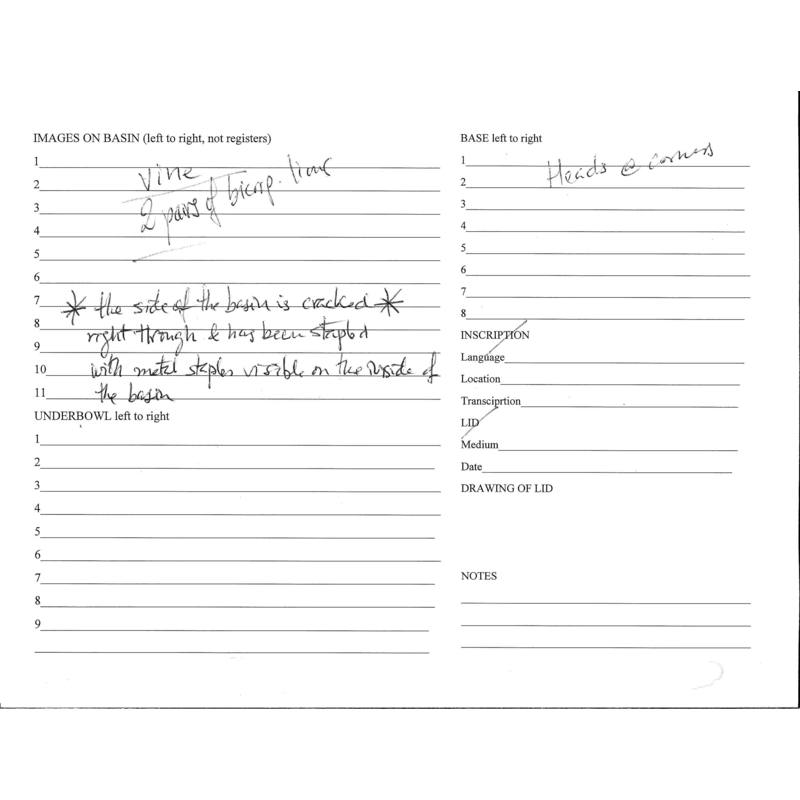 IMAGES ON BASIN (left to right, not registers)
1
vine
2
2 pairs of bicorp. lions
3
4
5
6
7 * the side of the basin is cracked *
8 right through & has been stapled
9
10 with metal staples visible on the inside of
11 the basin
UNDERBOWL left to right
1
2
3
4
5
6
7
8
9
BASE left to right
1 Heads @ corners
2
3
4
5
6
7
8
INSCRIPTION
Language
Location
Transciprtion
LID
Medium
Date
DRAWING OF LID
NOTES